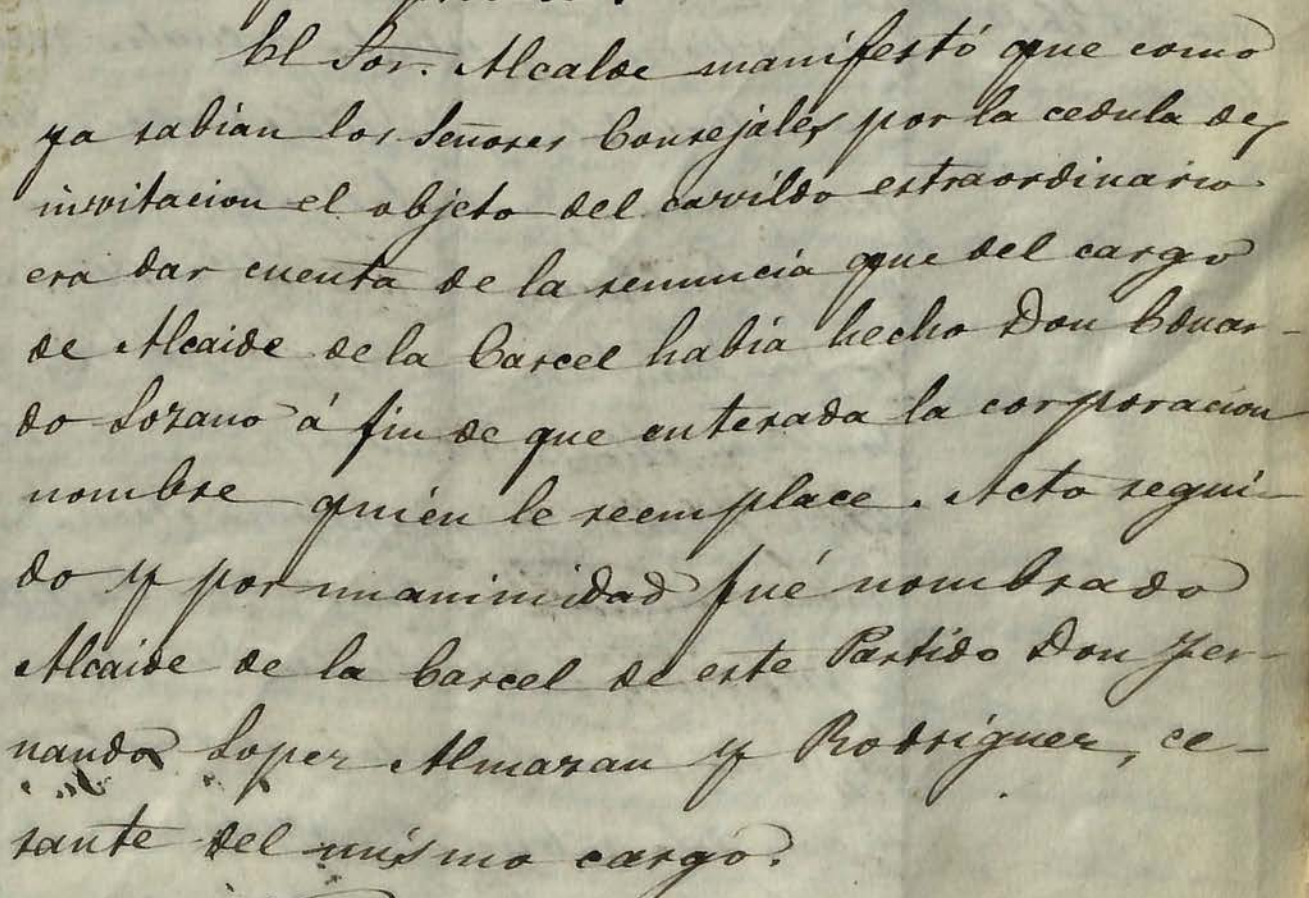 El Sor. Alcalde manifestó que como
ya sabian los Señores Consejales por la cedula de
invitacion el objeto del cavildo estraordinario
era dar cuenta de la renuncia que del cargo
de Alcaide de la Carcel había hecho Don Eduar-
do Lozano á fin de que enterada la corporacion
nombre quién le reemplace. Acto segui-
do y por unaninidad fué nombrado
Alcaide de la Carcel de este Partido Don Fer-
nando Lopez Almazan y Rodríguez, ce-
sante del mismo cargo.